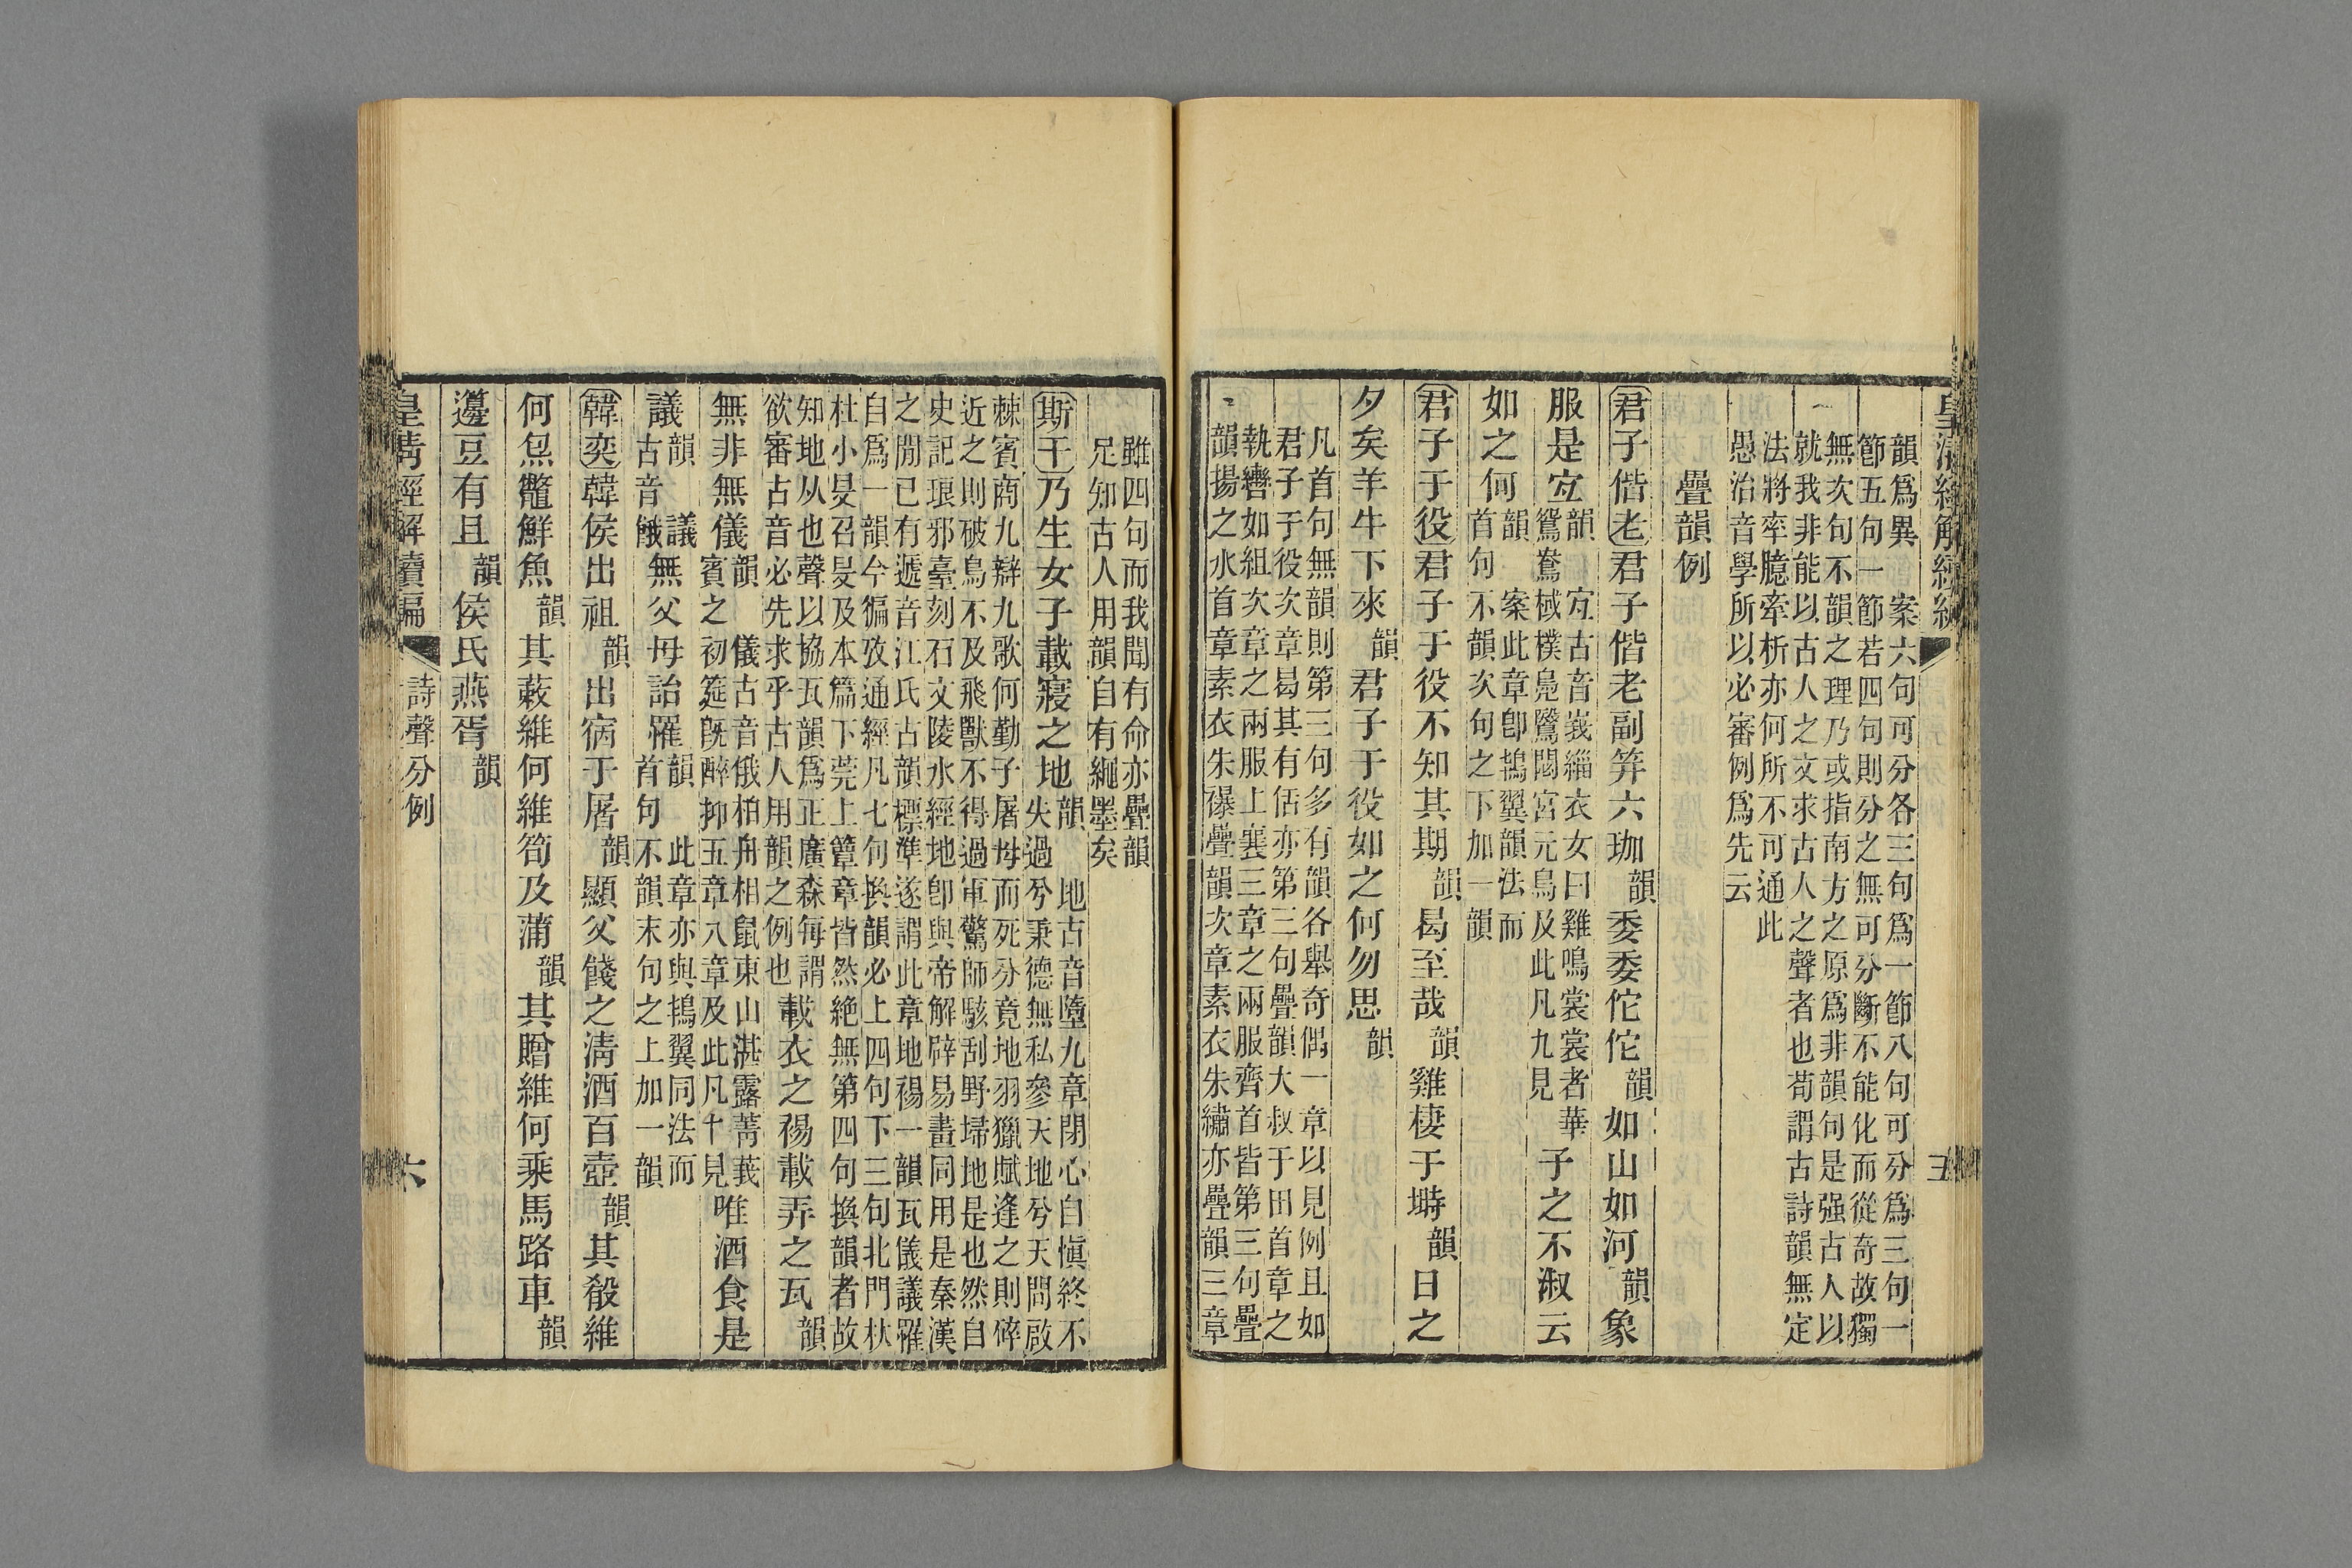 皇清經解續編
五
韻爲異　案六句可分各三句爲一節八句可分爲三句一
節五句一節若四句則分之無可分斷不能化而從奇故獨
無次句不韻之理乃或指南方之原爲非韻句是强古人以
就我非能以古人之文求古人之聲者也苟謂古詩韻無定
法將率臆牽析亦何所不可通此
愚治音學所以必審例爲先云
疊韻例
君子偕老君子偕老副笄六珈韻委委佗佗韻如山如河韻象
服是宐韻　宐古音峩緇衣女曰雞鳴裳裳者華
鴛鴦棫樸鳧鷖閟宮元鳥及此凡九見
子之不淑云
如之何韻　案此章卽搗翼韻法而
首句不韻次句之下加一韻
君子于役君子于役不知其期韻曷至哉韻雞棲于塒韻日之
夕矣羊牛下來韻君子于役如之何勿思韻
凡首句無韻則第三句多有韻各舉奇偶一章以見例且如
君子于役次章曷其有佸亦第三句疊韻大叔于田首章之
執轡如組次章之兩服上襄三章之兩服齊首皆第三句疊
韻揚之水首章素衣朱襮疊韻次章素衣朱繡亦疊韻三章
雖四句而我聞有命亦疊韻
足知古人用韻自有繩墨矣
斯干乃生女子載寢之地韻　地古音墮九章閉心自愼終不
失過兮秉德無私參天地兮天問啟
棘賓商九辯九歌何勤子屠母而死分竟地羽獵賦逢之則碎
近之則破鳥不及飛獸不得過軍驚師駭刮野埽地是也然自
史記琅邪臺刻石文陵水經地卽與帝解辟易畫同用是秦漢
之閒已有遞音江氏古韻標準遂謂此章地裼一韻瓦儀議罹
自爲一韻今徧攷通經凡七句換韻必上四句下三句北門杕
杜小旻召旻及本篇下莞上簟章皆然絶無第四句換韻者故
知地从也聲以協瓦韻爲正廣森每謂
欲審古音必先求乎古人用韻之例也
載衣之裼載弄之瓦韻
無非無儀韻　儀古音俄柏舟相鼠東山湛露菁莪
賓之初筵旣醉抑五章八章及此凡十見
唯酒食是
議韻　議
古音䤗
無父母詒罹韻　此章亦與搗翼同法而
首句不韻末句之上加一韻
韓奕韓侯出祖韻出宿于屠韻顯父餞之淸酒百壺韻其殽維
何炰鼈鮮魚韻其蔌維何維筍及蒲韻其贈維何乘馬路車韻
籩豆有且韻侯氏燕胥韻
皇清經解續編
詩聲分例
六